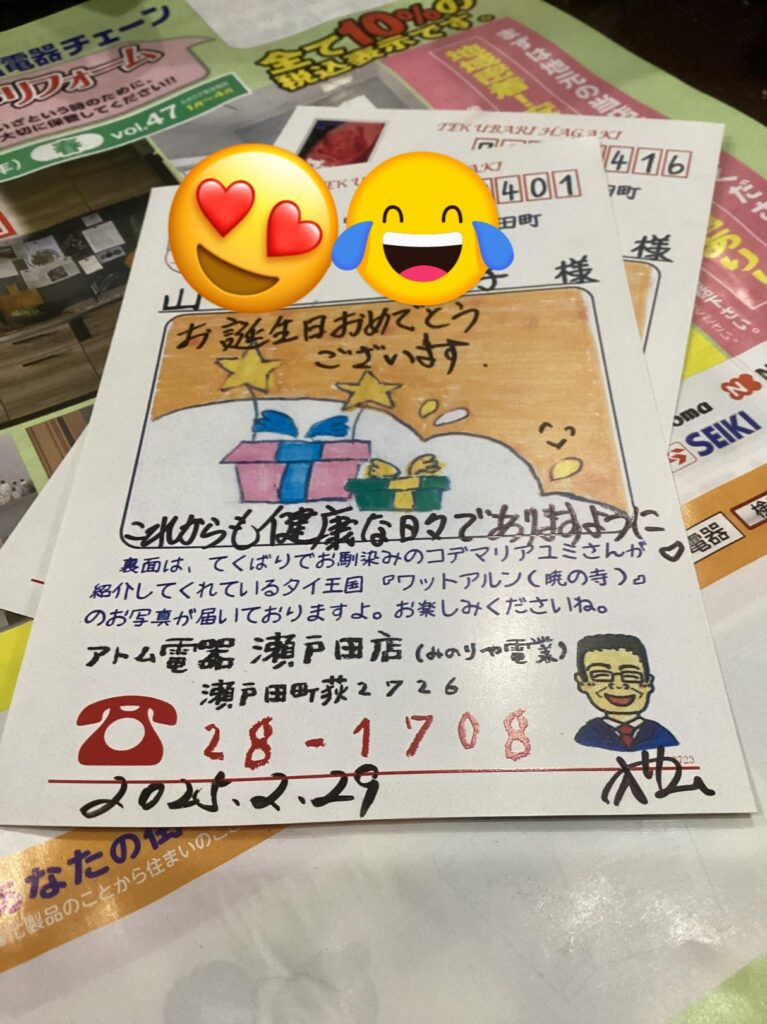 電器チェーン
リフォーム
いざという時のために、
大切に保管してください!!
春 vol.47
1月~4月
全て10%の
税込表示です。
まずは地元の当
地域密着
TEKUBARI HAGAKI
416
町
様
401
田町
山
子 様
お誕生日おめでとう
ございます.
これからも健康な日々でありますように
裏面は、てくばりでお馴染みのコデマリアユミさんが
紹介してくれているタイ王国『ワットアルン(暁の寺)』
のお写真が届いておりますよ。お楽しみくださいね。
アトム電器 瀬戸田店(みのりや電業)
瀬戸田町荻2726
28-1708
2025.2.29
oma
SEIKI
電器
検
あなたの街
化製品のことから住まいのこ